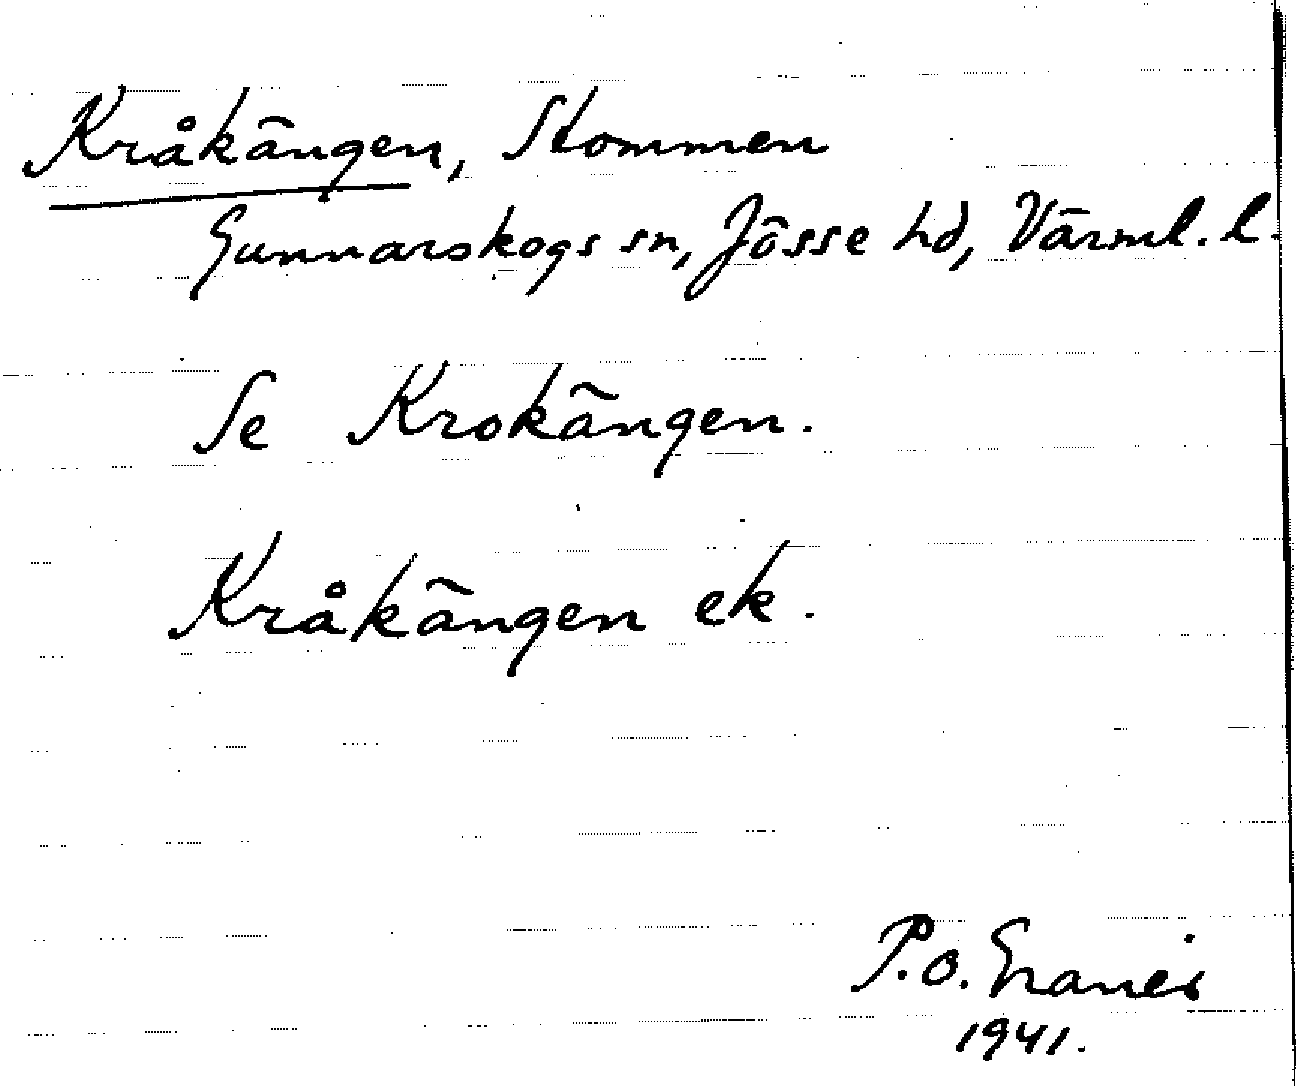 Kråkängen, Stommen
Gunnarskogs sn, Jösse hd, Värml. l.
Se Krokängen.
Kråkängen ek.
P.O.
1941.